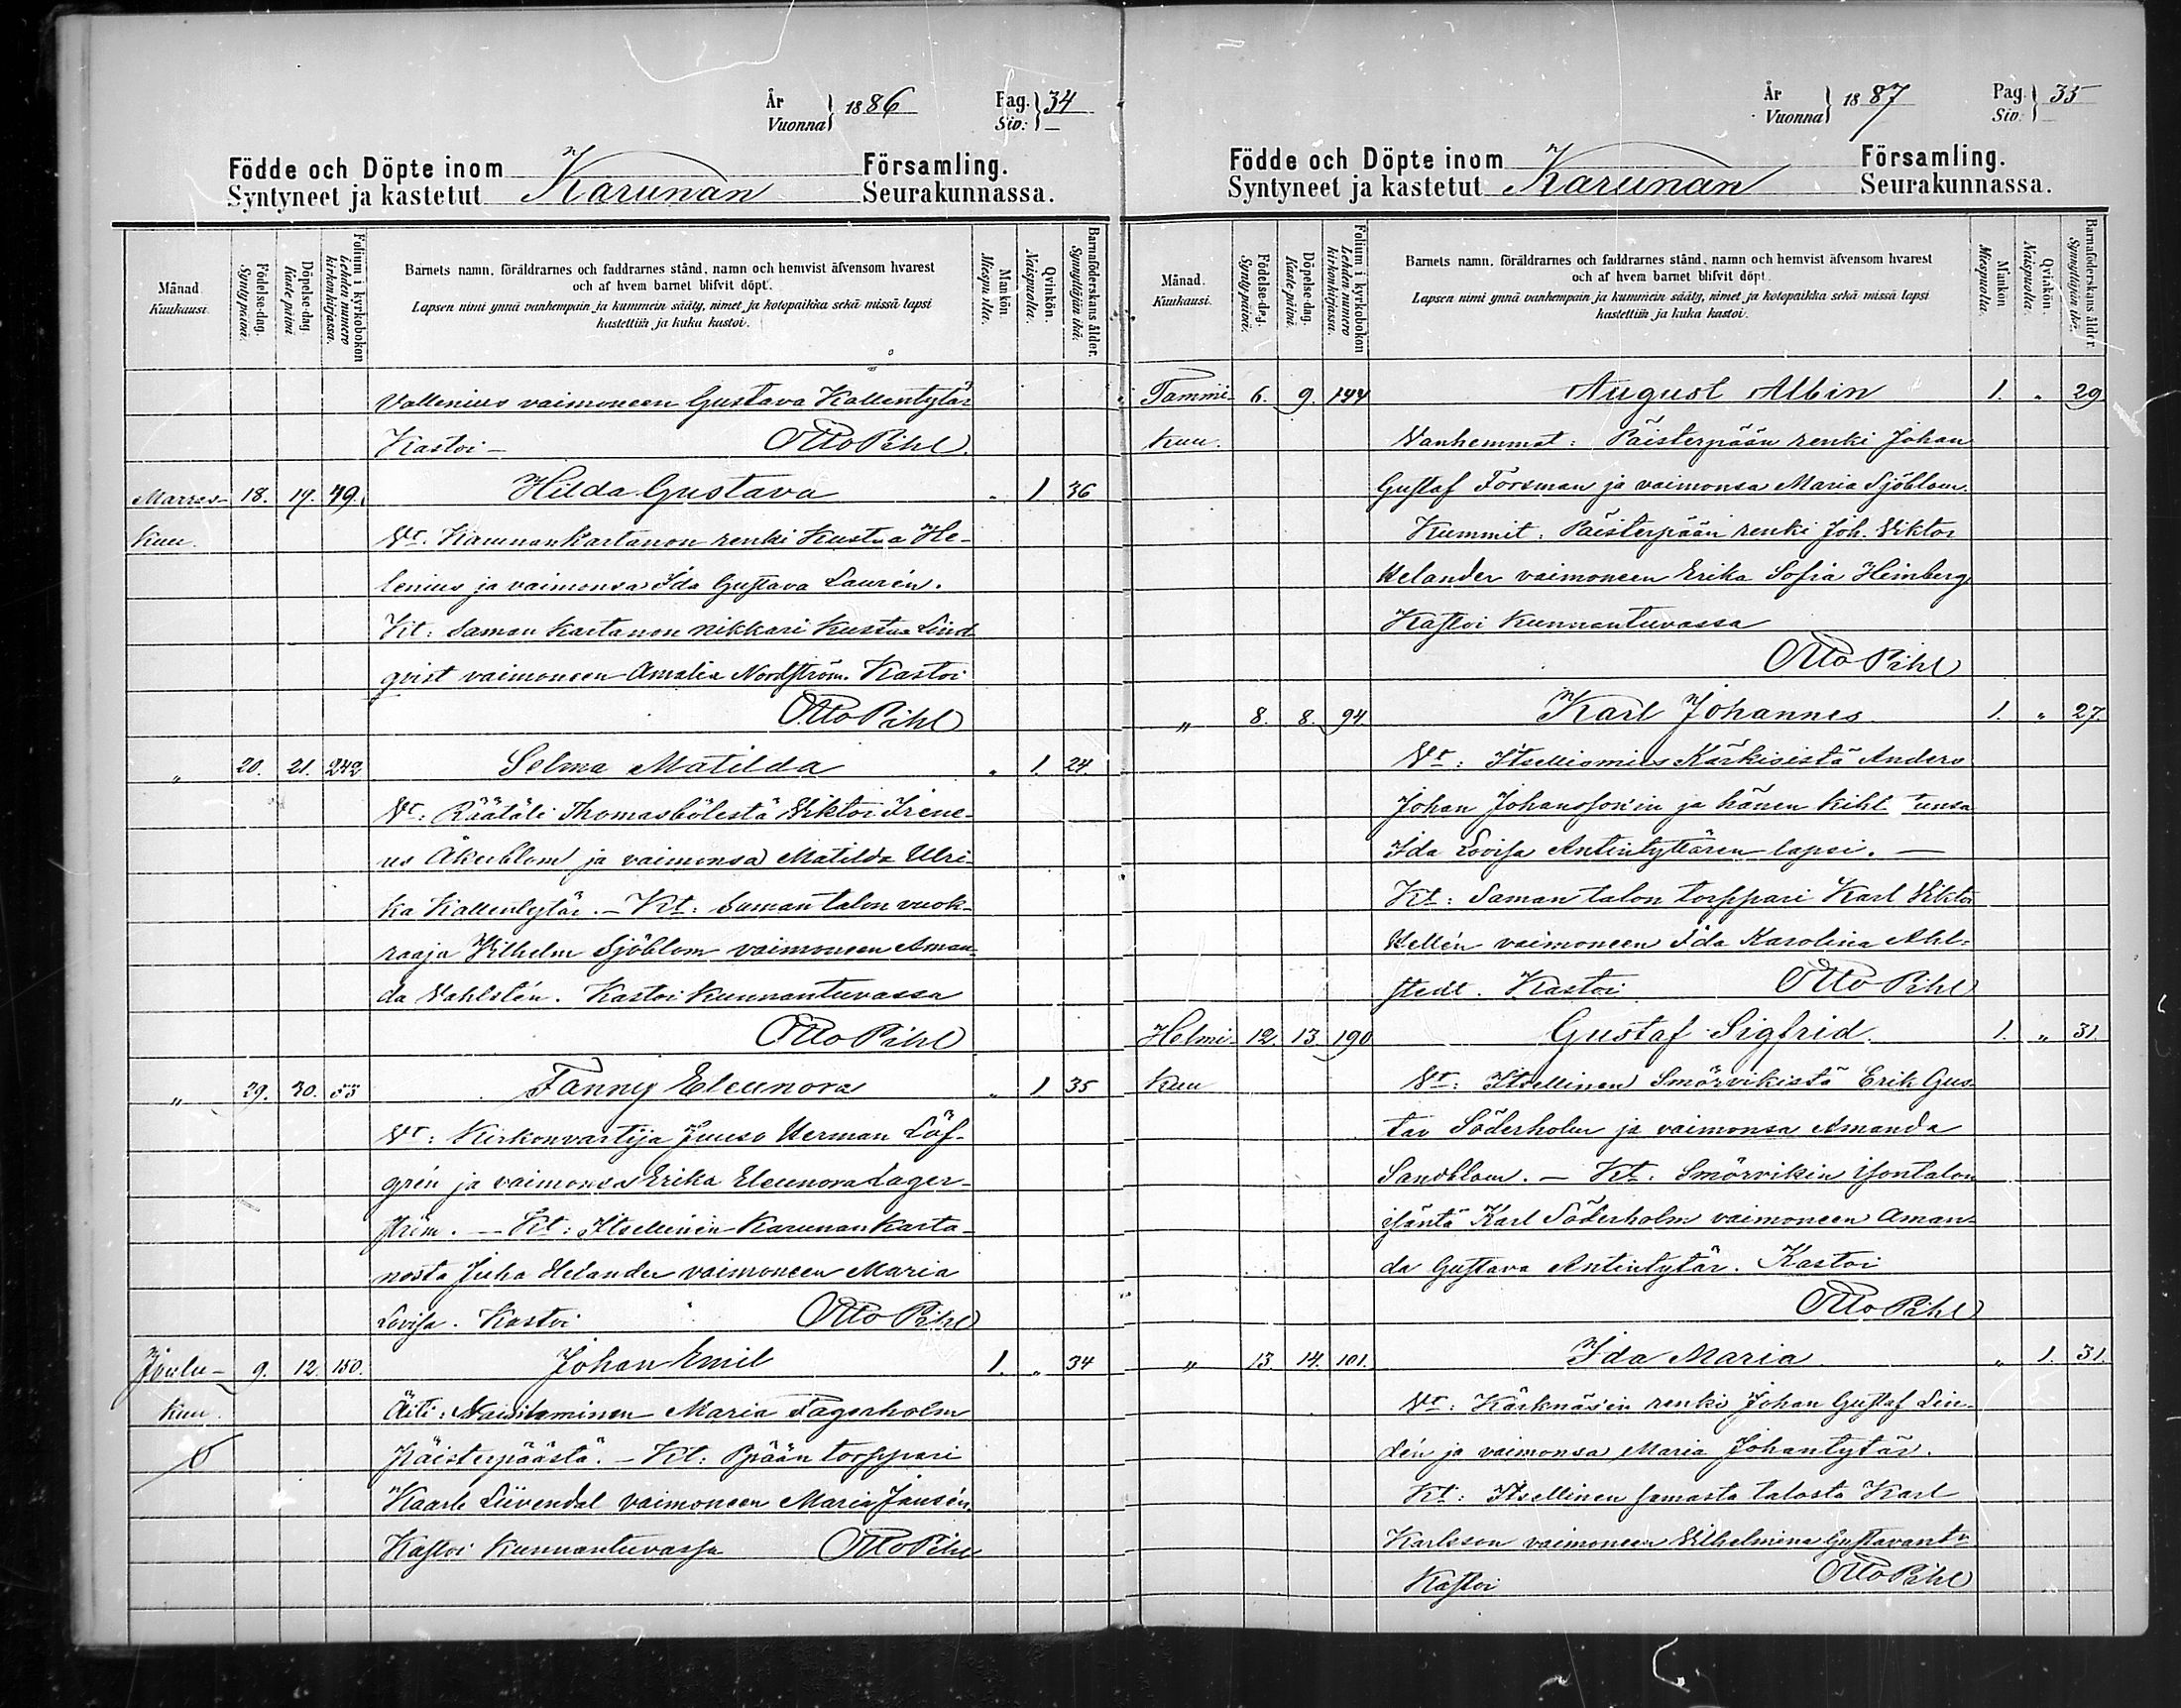 År
Vuonna } 1886 Pag. } 34
Siv: } —
Födde och Döpte inom Församling.
Syntyneet ja kastetut Karunan Seurakunnassa.
Månad. Kuukausi. Födelse-dag. Syntypäivä. Döpelse-dag. Kaste päivä. Folium i kyrkobokon Lehden numero kirkonkirjassa. Barnets namn, föräldrarnes och faddrarnes stånd, namn och hemvist äfvensom hvarest
och af hvem barnet blifvit döpt.
Lapsen nimi ynnä vanhempain ja kummein sääty, nimet ja kotopaikka sekä missä lapsi
kastettiin ja kuka kastoi.
Mankön. Qvinkön. Naispuolta. Barnaföderskans ålder. Synnyttäjän ikä.
Vallenius vaimoneen Gustava Kallentytär
Kastoi – Otto Pihl.
Marras- 18. 19. 49. Hilda Gustava „ 1 36
Kuu. Vt. Karunankartanon renki Kustaa He-
lenius ja vaimonsa Ida Gustava Laurén.
Kt: Saman Kartanon nikkari Kustaa Lind-
qvist vaimoneen Amalia Nordström. Kastoi
Otto Pihl
„ 20. 21. 242 Selma Matilda „ 1. 24
Vt: Räätäli Thomasbölestä Viktor Irene-
us Åkerblom ja vaimonsa Matilda Ulri-
ka Kallentytär. – Kt: Saman talon vuok-
raaja Vilhelm Sjöblom vaimoneen Aman-
da Vahlstén. Kastoi Kunnantuvassa
Otto Pihl
„ 29. 30. 53 Fanny Eleunora „ 1 35
Vt: Kirkonvartija Juuso Herman Löf-
grén ja vaimonsa Erika Eleunora Lager-
ström. – Kt: Itsellinen Karunankarta-
nosta Juha Helander vaimoneen Maria
Lovisa. Kastoi Otto Pihl
Joulu- 9. 12. 150. Johan Emil 1. „ 34
Kuu. Äiti: Maria Fagerholm
Päisterpäästä. – Kt: Ppään torppari
Kaarle Liivendal vaimoneen Maria Jansén.
Kastoi Kunnantuvassa Otto Pihl
År
Vuonna } 1887 Pag. } 35
Siv. } —
Födde och Döpte inom Församling.
Syntyneet ja kastetut Karunan Seurakunnassa.
Månad. Kuukausi. Födelse-dag. Syntypäivä. Döpelse-dag. Kaste päivä. Folium i kyrkobokon Lehden numero kirkonkirjassa. Barnets namn, föräldrarnes och faddrarnes stånd, namn och hemvist äfvensom hvarest
och af hvem barnet blifvit döpt.
Lapsen nimi ynnä vanhempain ja kummein sääty, nimet ja kotopaikka sekä missä lapsi
kastettiin ja kuka kastoi.
Mankön. Miespuolta. Qvinkön. Naispuolta. Barnaföderskans ålder. Synnyttäjän ikä.
Tammi- 6. 9. 144 August Albin 1. „ 29
Kuu. Vanhemmat: Päisterpään renki Johan
Gustaf Forsman ja vaimonsa Maria Sjöblom.
Kummit: Päisterpään renki Joh. Viktor
Helander vaimoneen Erika Sofia Heinberg
Kastoi Kunnantuvassa
Otto Pihl
„ 8. 8. 94. Karl Johannes 1. „ 27.
Vt: Itsellismies Kärkisistä Anders
Johan Johansson'in ja hänen kihl tunsa
Ida Lovisa Antintyttären lapsi. —
Kt: Saman talon torppari Karl Viktor
Hellén vaimoneen Ida Karolina Ahl-
stedt. Kastoi Otto Pihl
Helmi- 12. 13. 190 Gustaf Sigfrid. 1. „ 31.
Kuu Vt: Itsellinen Smörvikistä Erik Gus-
tav Söderholm ja vaimonsa Amanda
Sandblom. – Kt: Smörvikin isontalon
isäntä Karl Söderholm vaimoneen Aman-
da Gustava Antintytär. Kastoi
Otto Pihl
„ 13. 14. 101. Ida Maria „ 1. 31.
Vt: Kärknäsin renki Johan Gustaf Lin-
dén ja vaimonsa Maria Johantytär.
Kt: Itsellinen samasta talosta Karl
Karlsson vaimoneen Vilhelmina Gustavant:
Kastoi Otto Pihl